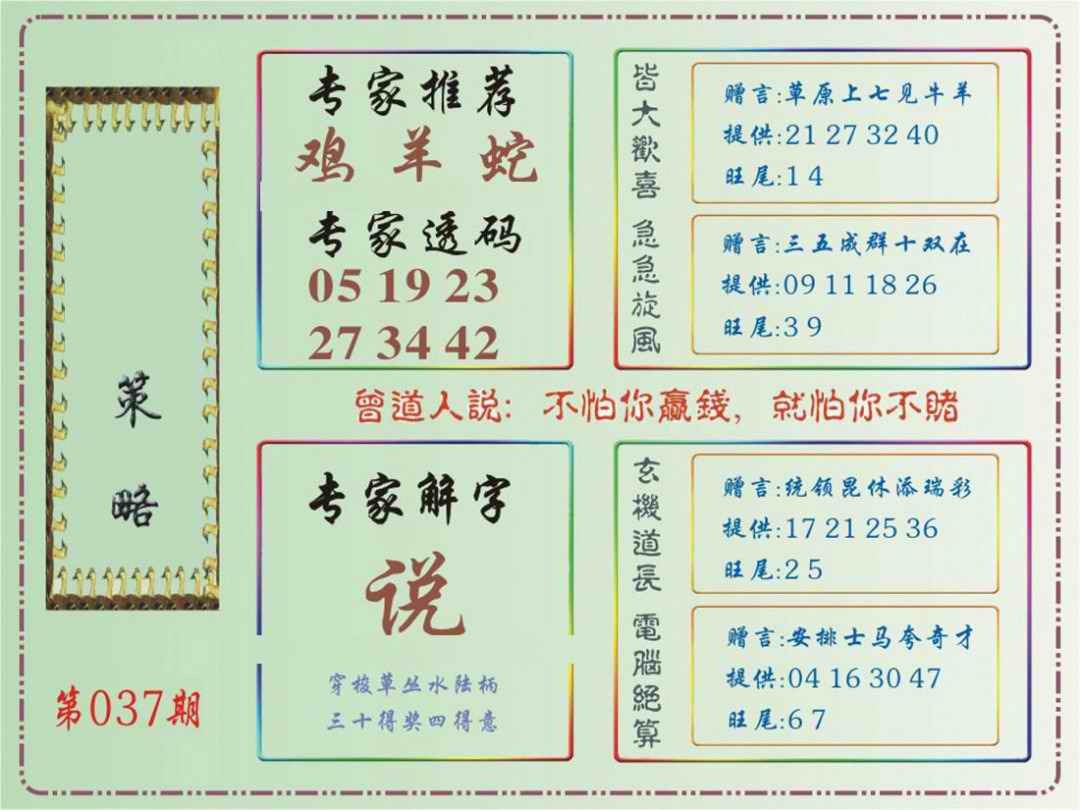 策略
第037期
专家推荐
鸡 羊 蛇
专家透码
05 19 23
27 34 42
皆大歡喜
赠言:草原上七见牛羊
提供:21 27 32 40
旺尾:1 4
急急旋風
赠言:三五成群十双在
提供:09 11 18 26
旺尾:3 9
曾道人説：不怕你赢錢，就怕你不賭
专家解字
说
穿梭草丛水陆柄
三十得奖四得意
玄機道長
赠言:统领昆休添瑞彩
提供:17 21 25 36
旺尾:2 5
電腦絕算
赠言:安排士马夸奇才
提供:04 16 30 47
旺尾:6 7